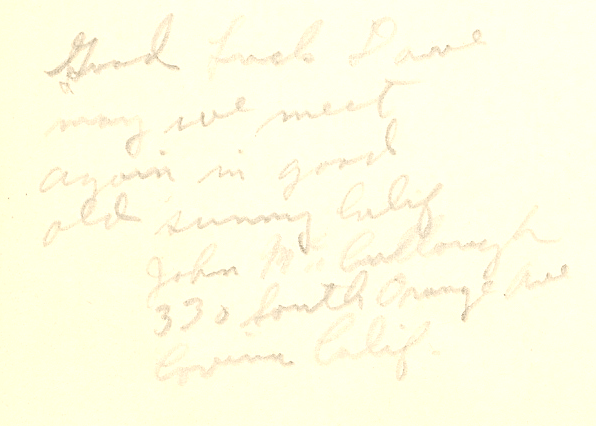 Good Luck Dave
may we meet
again in good
old sunny Calif
John McCullough
330 South Orange Ave
Covina Calif.